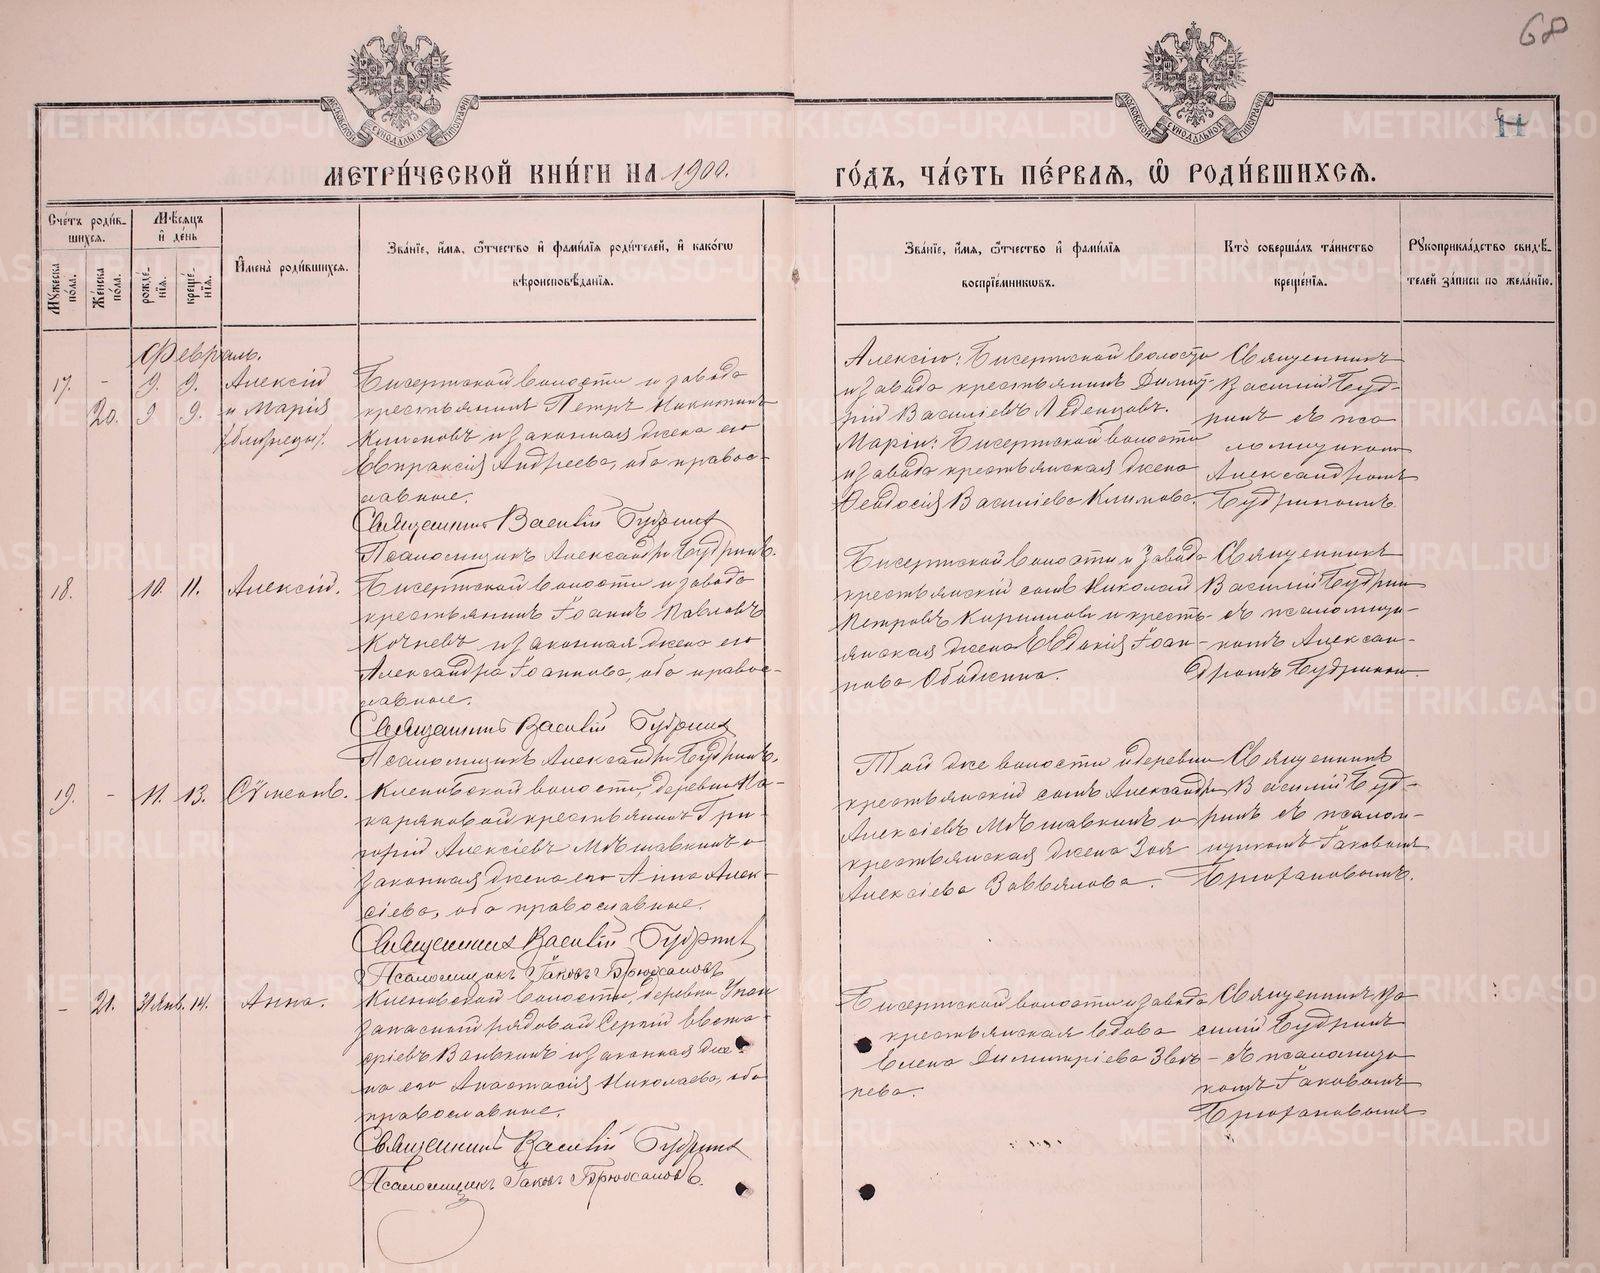 68
МОСКОВСКОЙ СУНОДАЛЬНОЙ ТИПОГРАФІИ
МОСКОВСКОЙ СУНОДАЛЬНОЙ ТИПОГРАФІИ
11
МЕТРИ́ЧЕСКОЙ КНИ́ГИ НА 1900. ГО́ДЪ, ЧА́СТЬ ПЕ́РВАѦ, Ѡ҆ РОДИ́ВШИХСѦ.
Сче́тъ роди́в-
шихсѧ.
Мꙋ́жеска по́ла.
Же́нска по́ла.
Мѣ́сѧцъ и҆ де́нь
рожде́-
нїѧ.
креще́-
нїѧ.
И҆мена̀ роди́вшихсѧ.
Зва́нїе, и҆́мѧ, ѻ҆́тчество и҆ фами́лїѧ роди́телей, и҆ како́гѡ
вѣроисповѣ́данїѧ.
Зва́нїе, и҆́мѧ, ѻ҆́тчество и҆ фами́лїѧ
воспрїе́мникѡвъ.
Кто̀ соверша́лъ та́инство
креще́нїѧ.
Рꙋкоприкла́дство свидѣ́-
телей за́писи по жела́нїю.
Февраль.
17. - 9. 9. Алексій
20. 9 9. и Марія
(близнецы).
Бисертской волости и завода
крестьянинъ Петръ Никитинъ
и законная жена его
Евпраксія Андреева, оба правос-
лавные.
Священникъ Василій Будринъ
Псаломщикъ Александръ Будринъ.
Алексію: Бисертской волости
и завода крестьянинъ Димит-
рій Васильевъ Леденцовъ.
Маріи: Бисертской волости
и завода крестьянская жена
Феодосія Васильева Климова.
Священникъ
Василій Буд-
ринъ съ пса
ломщикомъ
Александромъ
Будринымъ.
18. 10. 11. Алексій.
Бисертской волости и завода
крестьянинъ Іоаннъ Павловъ
Кочневъ и законная жена его
Александра Іоаннова, оба правос-
лавные.
Священникъ Василій Будринъ
Псаломщикъ Александръ Будринъ.
Бисертской волости и завода
крестьянскій сынъ Николай
Петровъ Кирилловъ и кресть-
янская жена Евдокія Іоан-
нова Ободкина.
Священникъ
Василій Будрин
съ псаломщи-
комъ Алексан-
дромъ Будриным.
19. - 11. 13. Сѵмеонъ.
Кленовской волости, деревни Ма-
каряновой крестьянинъ Гри-
горій Алексіевъ Мѣшавкинъ и
законная жена его Анна Алек-
сіева, оба православные.
Священникъ Василій Будринъ
Псаломщикъ Іаковъ Брюхановъ
Той же волости и деревни
крестьянскій сынъ Александръ
Алексіевъ Мѣшавкинъ и
крестьянская жена Зоя
Алексіева Завьялова.
Священникъ
Василій Буд-
ринъ съ псалом-
щикомъ Іаковомъ
Брюхановымъ.
- 21. 31 Янв. 14. Анна.
Кленовской волости, деревни
запасной рядовой Сергій Евста-
фіевъ Ванькинъ и законная же-
на его Анастасія Николаева, оба
православные.
Священникъ Василій Будринъ
Псаломщикъ Іаковъ Брюхановъ.
Бисертской волости и завода
крестьянская вдова
Елена Димитріева Звѣ-
рева.
Священникъ Ва
силій Будринъ
съ псаломщи
комъ Іаковомъ
Брюхановымъ
METRIKI.GASO-URAL.RU